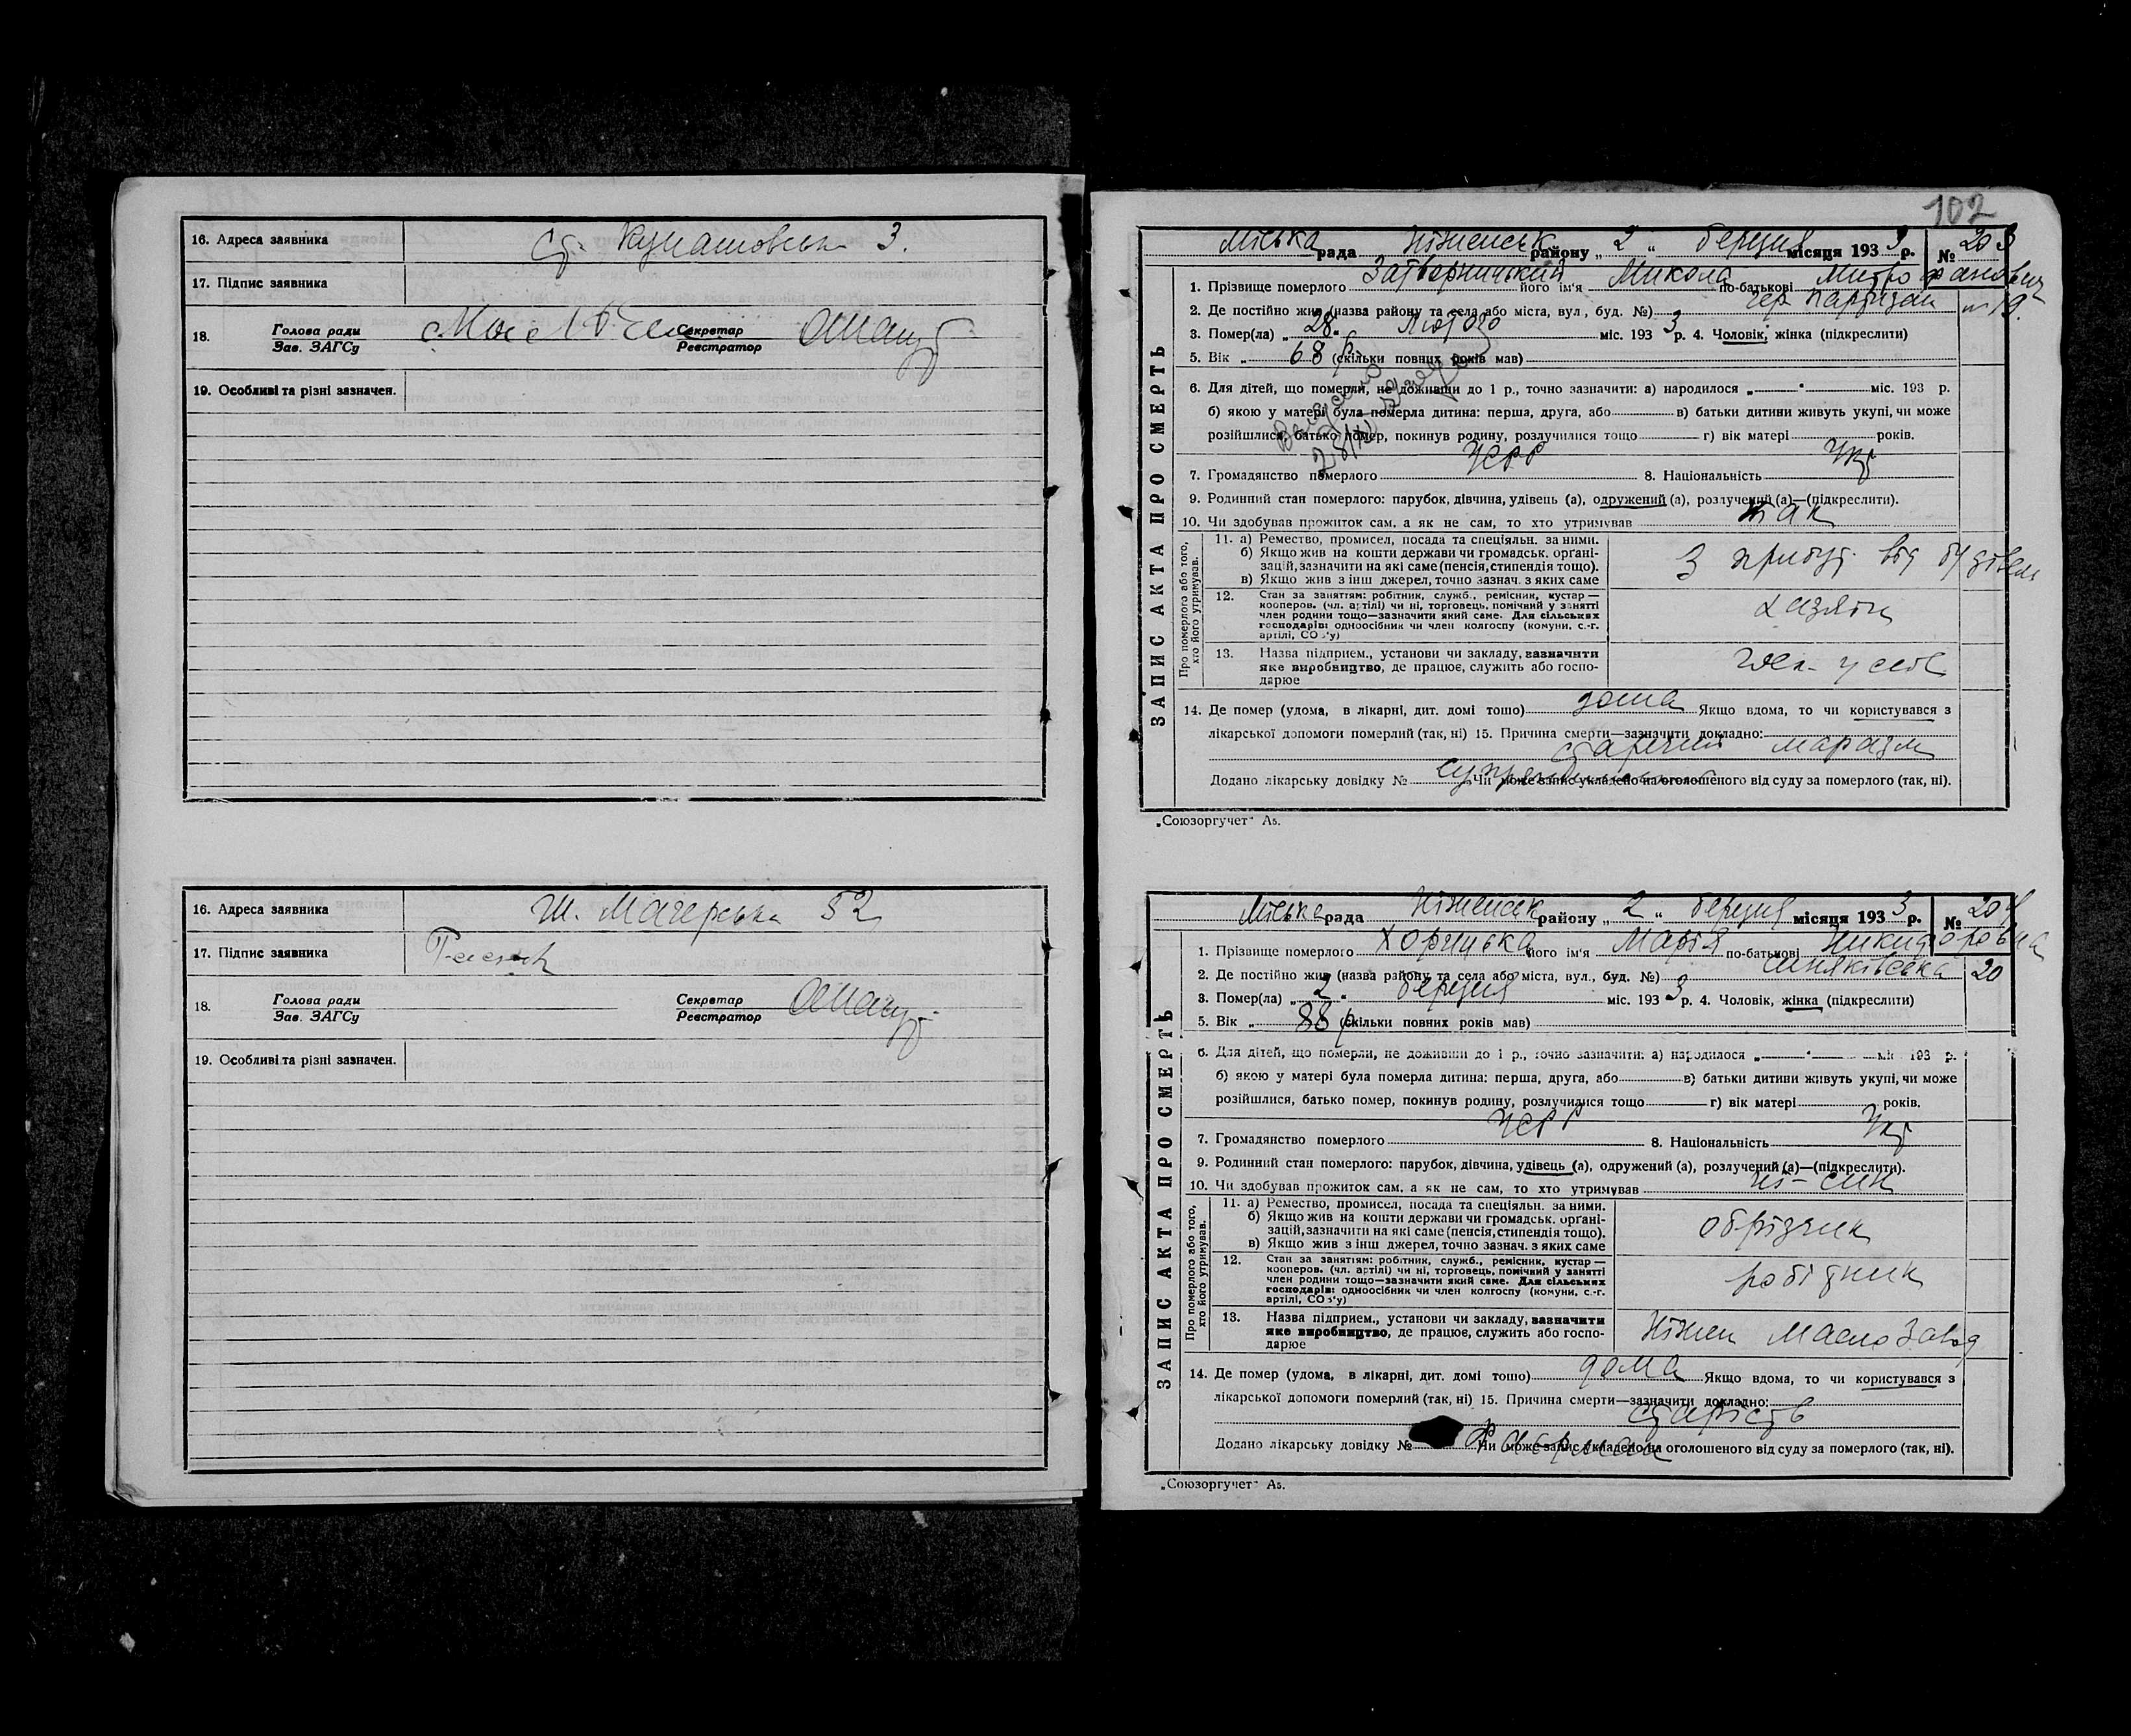 16. Адреса заявника
3.
17. Підпис заявника
18. Голова ради
Зав. ЗАГСу
Секретар
Реєстратор
19. Особливі та різні зазначен.
16. Адреса заявника
Ш. Мачерська 52
17. Підпис заявника
18. Голова ради
Зав. ЗАГСу
Секретар
Реєстратор
19. Особливі та різні зазначен.
102
ЗАПИС АКТА ПРО СМЕРТЬ
Міська рада Ніженськ району „ 2 “ березня місяця 193 3 р. № 203
1. Прізвище померлого Затворницький його ім'я Микола по-батькові Митрофанович
2. Де постійно жив (назва району та села або міста, вул., буд. №) Чер партизан № 19.
3. Помер(ла) „ 28 “ Лютого міс. 193 3 р. 4. Чоловік, жінка (підкреслити)
5. Вік „ 68 р (скільки повних років мав)
6. Для дітей, що померли, не доживши до 1 р., точно зазначити: а) народилося „ “ міс. 193 р.
б) якою у матері була померла дитина: перша, друга, або в) батьки дитини живуть укупі, чи може
розійшлися, батько помер, покинув родину, розлучилися тощо г) вік матері років.
7. Громадянство померлого УСРР 8. Національність Укр
9. Родинний стан померлого: парубок, дівчина, удівець (а), одружений (а), розлучений (а)—(підкреслити).
10. Чи здобував прожиток сам, а як не сам, то хто утримував так
Про померлого або того, хто його утримував.
11. а) Ремество, промисел, посада та спеціяльн. за ними.
б) Якщо жив на кошти держави чи громадськ. органі-
зацій, зазначити на які саме (пенсія, стипендія тощо).
в) Якщо жив з інш джерел, точно зазнач. з яких саме
З прибут. від будівель
12. Стан за заняттям: робітник, служб., ремісник, кустар —
кооперов. (чл. артілі) чи ні, торговець, помічний у занятті
член родини тощо—зазначити який саме. Для сільських
господарів: одноосібник чи член колгоспу (комуни, с.-г.
артілі, СОЗ'у)
хазяїн
13. Назва підприєм., установи чи закладу, вазначити
яке виробництво, де працює, служить або госпо-
дарює
14. Де помер (удома, в лікарні, дит. домі тощо) дома Якщо вдома, то чи користувався з
лікарської допомоги померлий (так, ні) 15. Причина смерти—зазначити докладно:
старечий маразм
Додано лікарську довідку № Чи може запис укладено на оголошеного від суду за померлого (так, ні).
„Союзоргучет“ А5.
ЗАПИС АКТА ПРО СМЕРТЬ
Міська рада Ніженськ району „ 2 “ березня місяця 193 3 р. № 204
1. Прізвище померлого Хорунська його ім'я Марія по-батькові Никифоровна
2. Де постійно жив (назва району та села або міста, вул., буд. №) Синяківська 20
3. Помер(ла) „ 2 “ березня міс. 193 3 р. 4. Чоловік, жінка (підкреслити)
5. Вік „ 88 р (скільки повних років мав)
6. Для дітей, що померли, не доживши до 1 р., точно зазначити: а) народилося „ “ міс 193 р.
б) якою у матері була померла дитина: перша, друга, або в) батьки дитини живуть укупі, чи може
розійшлися, батько помер, покинув родину, розлучилися тощо г) вік матері років.
7. Громадянство померлого УСРР 8. Національність Укр
9. Родинний стан померлого: парубок, дівчина, удівець (а), одружений (а), розлучений (а)—(підкреслити).
10. Чи здобував прожиток сам, а як не сам, то хто утримував ні - син
Про померлого або того, хто його утримував.
11. а) Ремество, промисел, посада та спеціяльн. за ними.
б) Якщо жив на кошти держави чи громадськ. органі-
зацій, зазначити на які саме (пенсія, стипендія тощо).
в) Якщо жив з інш джерел, точно зазнач. з яких саме
обрізчик
12. Стан за заняттям: робітник, служб., ремісник, кустар —
кооперов. (чл. артілі) чи ні, торговець, помічний у занятті
член родини тощо—зазначити який саме. Для сільських
господарів: одноосібник чи член колгоспу (комуни, с.-г.
артілі, СОЗ'у)
робітник
13. Назва підприєм., установи чи закладу, вазначити
яке виробництво, де працює, служить або госпо-
дарює
Ніжен Маслозавод
14. Де помер (удома, в лікарні, дит. домі тощо) дома Якщо вдома, то чи користувався з
лікарської допомоги померлий (так, ні) 15. Причина смерти—зазначити докладно:
старість
Додано лікарську довідку № Чи може запис укладено на оголошеного від суду за померлого (так, ні).
„Союзоргучет“ А5.